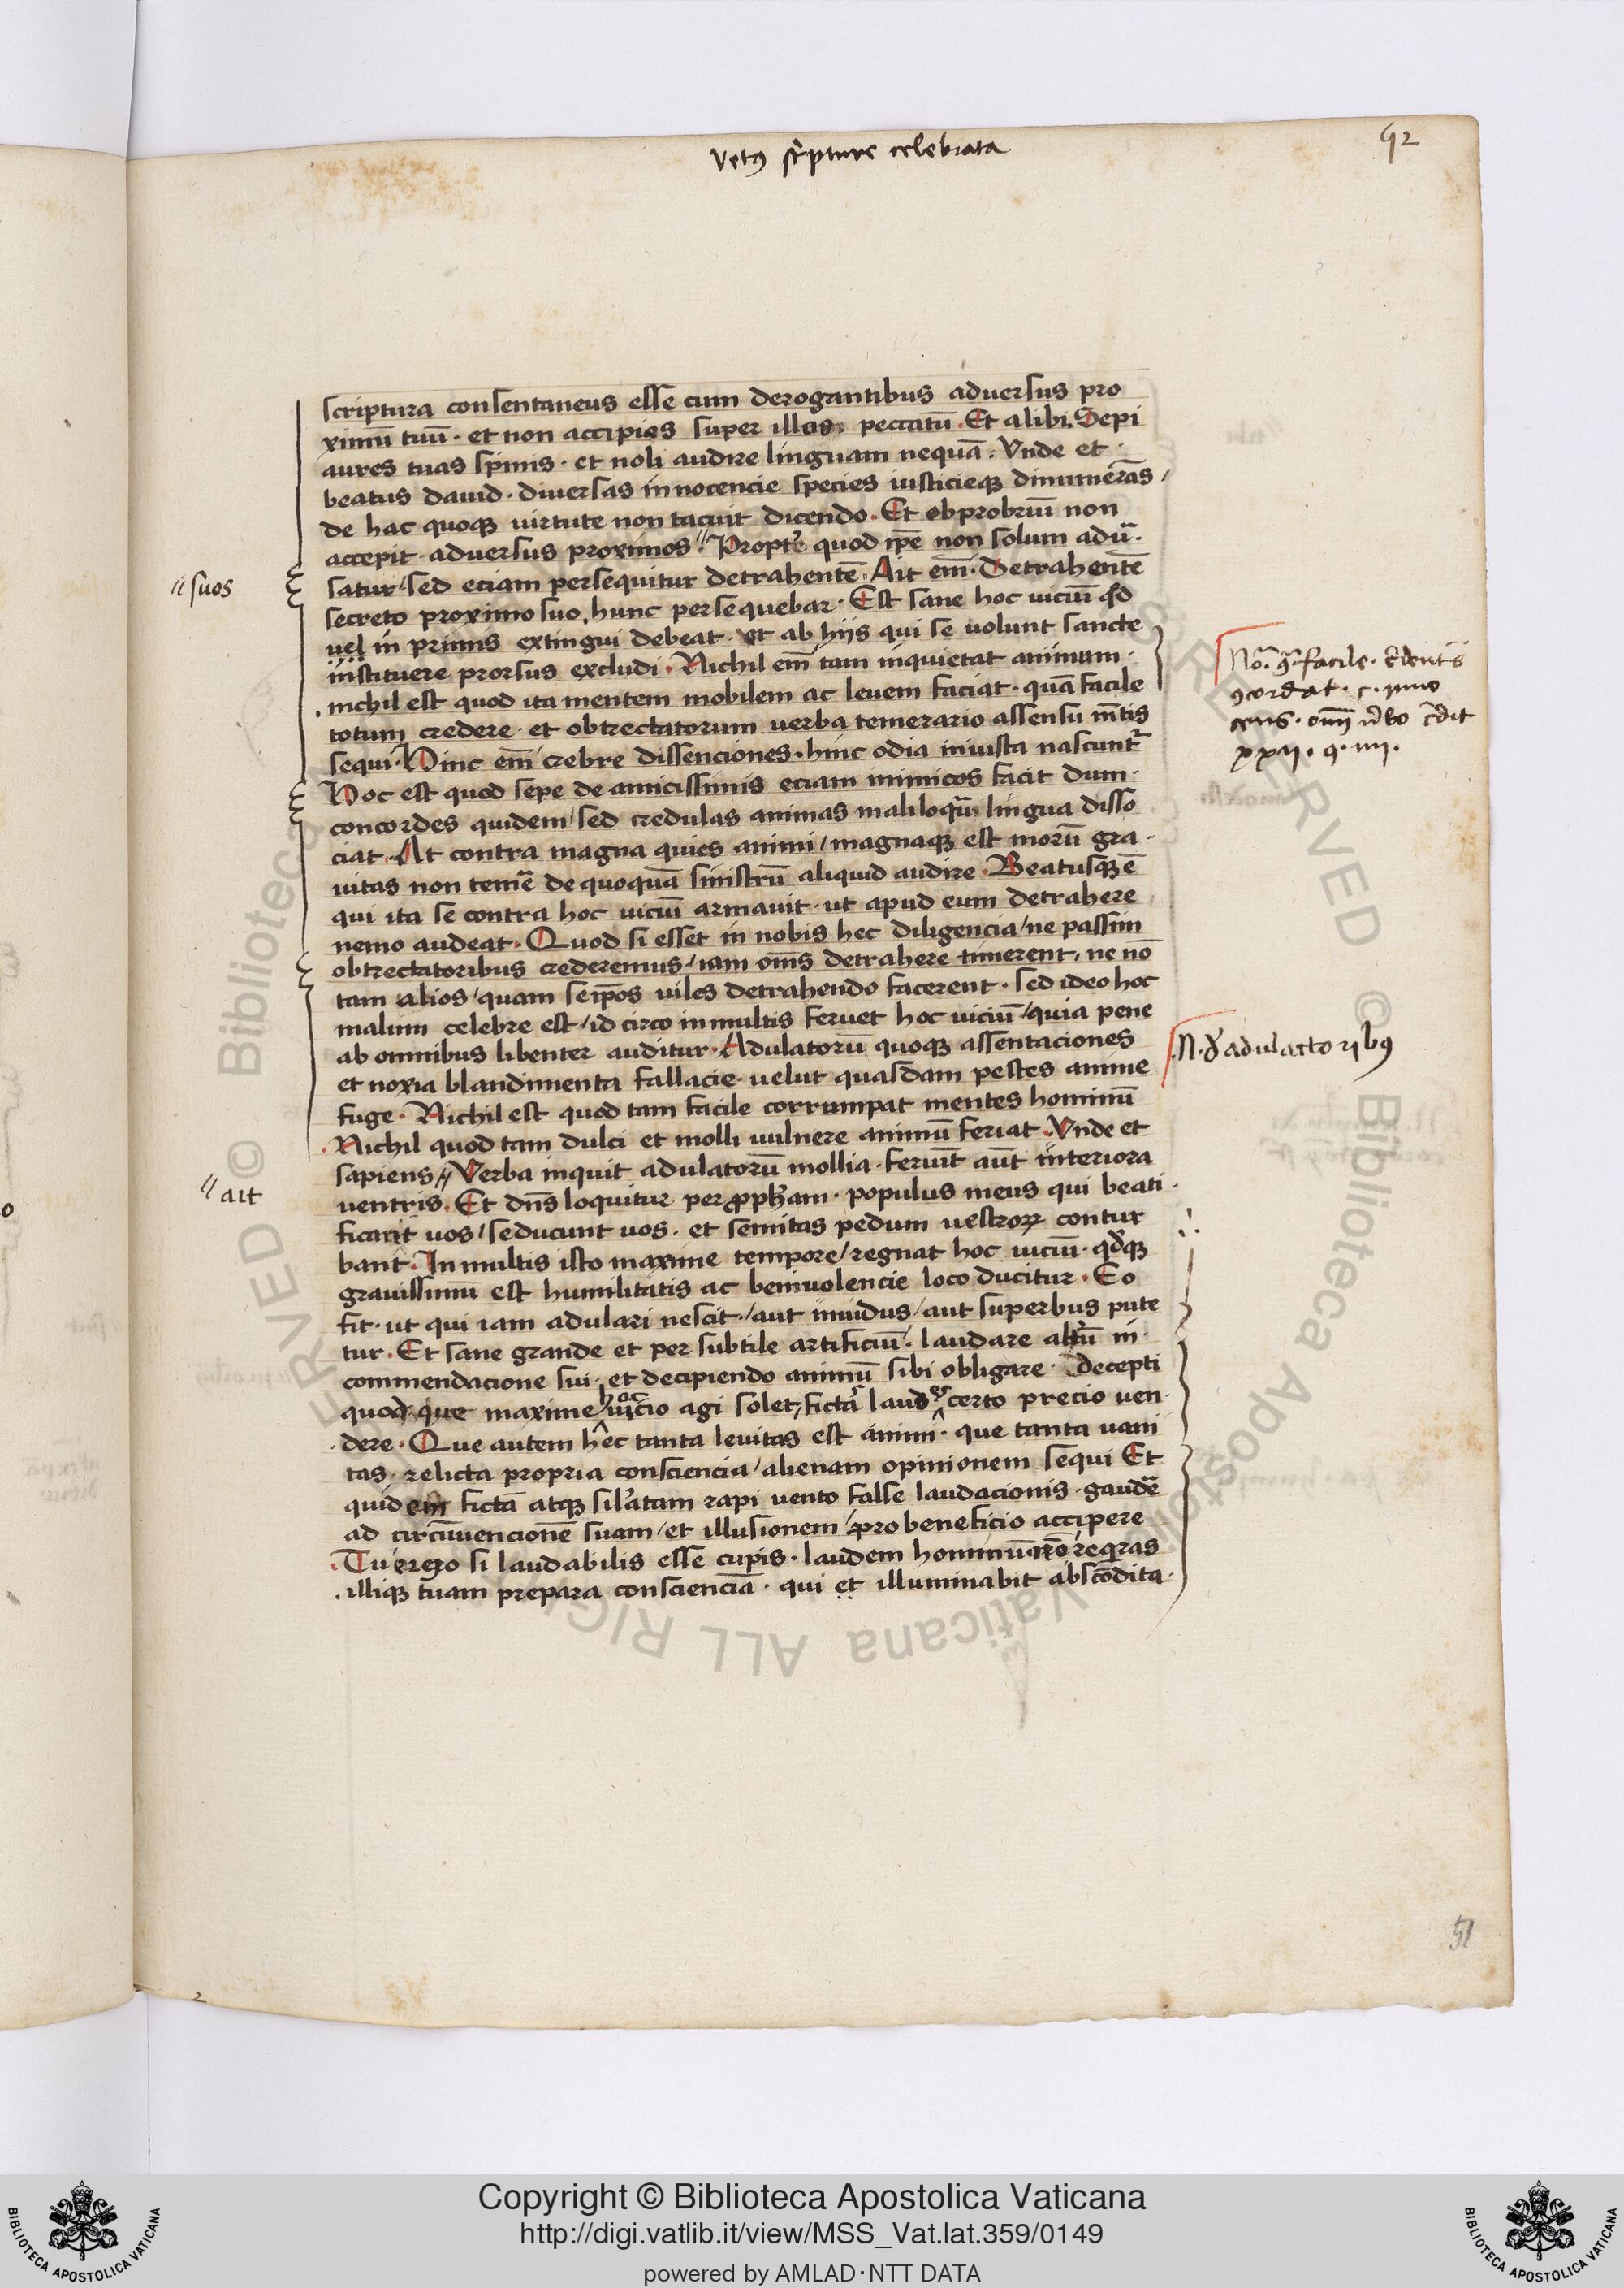 vetꝰ sc̓pture celebrata
92
scriptura consentaneus esse cum derogantibus aduersus pro
ximū tuū · et non accipies super illos peccatū · Et alibi. Sepi
aures tuas spinis · et noli audire linguam nequā : Vnde et ·
beatus dauid · diuersas innocencie species iusticieqꝫ dinumerās /
de hac quoqꝫ uirtute non tacuit dicendo · Et obprobriū non
accepit · aduersus proximos // Propter̄ quod ip̄e non solum adū̄ ·
satur / sed eciam persequitur detrahentē · Ait em̄ · Detrahentē
secreto proximo suo, hunc persequebar · Est sane hoc uiciū qd̄
uel in primis extingui debeat · et ab hijs qui se uolunt sancte
instituere prorsus excludi · Nichil em̄ tam inquietat animum ·
nichil est quod ita mentem mobilem ac leuem faciat · quā facile
totum credere · et obtrectatorum uerba temerario assensu m̄tis
sequi · Hinc em̄ crebre dissenciones · hinc odia iniusta nascunt᷑
Hoc est quod sepe de amicissimis eciam inimicos facit dum ·
concordes quidem / sed credulas animas maliloqū̄ lingua disso
ciat · At contra magna quies animi / magnaqꝫ est morū gra ·
uitas non tem̄e de quoquā sinistrū aliquid audire · Beatusqꝫ ē
qui ita se contra hoc uiciū armauit · ut apud eum detrahere
nemo audeat · Quod si esset in nobis hec diligencia / ne passim
obtrectatoribus crederemus / iam om̄s detrahere timerent, ne nō
tam alios / quam seip̄os uiles detrahendo facerent · sed ideo hoc
malum celebre est / id circo in multis feruet hoc uiciū / quia pene
ab omnibus libenter auditur · Adulatorū quoqꝫ assentaciones
et noxia blandimenta fallacie · uelut quasdam pestes anime
fuge · Nichil est quod tam facile corrumpat mentes hominū
Nichil quod tam dulci et molli uulnere animū feriat · Vnde et
sapiens // Verba inquit adulatorū mollia · feriūt aūt interiora
uentris · Et dn̄s loquitur per ꝓph̄am · populus meus qui beati ·
ficant uos / seducunt uos · et semitas pedum uestroꝝ contur
bant · In multis isto maxime tempore / regnat hoc uiciū · qd̄qꝫ
grauissimū est humilitatis ac beniuolencie loco ducitur · Eo
fit · ut qui iam adulari nescit / aut inuidus / aut superbus pute
tur · Et sane grande et per subtile artificiū · laudare alt᷑ū in ·
commendacione sui · et decipiendo animū sibi obligare · Decepti
quodqꝫ que maxime hoc uicio agi solet, fictā laudē certo precio uen ·
dere · Que autem hec tanta leuitas est animi · que tanta uani
tas · relicta propria consciencia / alienam opinionem sequi Et
quidem fictā atqꝫ sil̓atam rapi uento false laudacionis · gaudē̄
ad circūuencionē suam / et illusionem / pro beneficio accipere
Tu ergo si laudabilis esse cupis · laudem hominū nō req̓ras
illiqꝫ tuam prepara conscienciā · qui et illuminabit abscōdita ·
// suos
// ait
ꝯcordat · c · inno
cens · om̄i v̄bo c̄dit
xxij · q · iiij ·
N · d̓ adulactoribꝰ
51
Copyright © Biblioteca Apostolica Vaticana
http://digi.vatlib.it/view/MSS_Vat.lat.359/0149
powered by AMLAD·NTT DATA
BIBLIOTECA APOSTOLICA VATICANA
BIBLIOTECA APOSTOLICA VATICANA